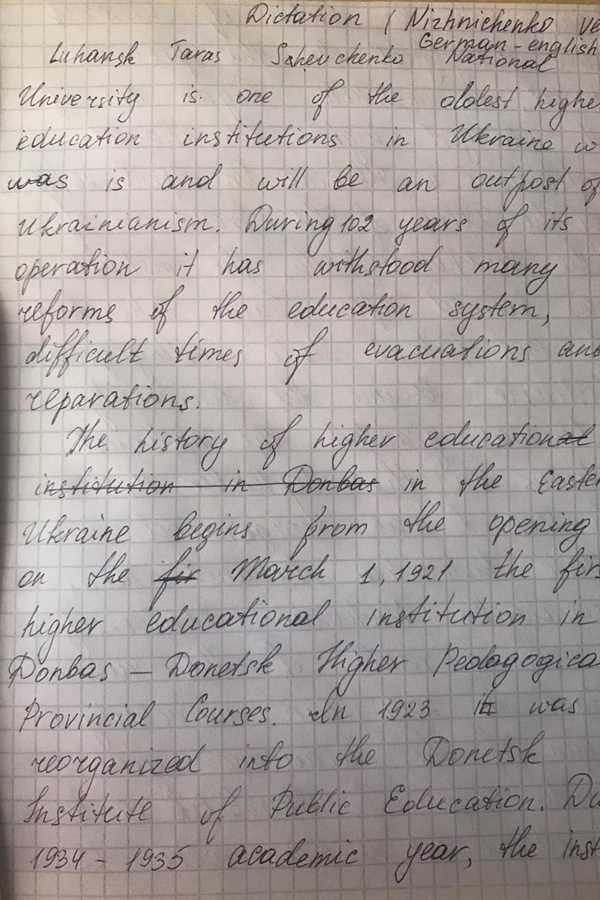 Dictation / Nizhnichenko Ve
German-english
Luhansk Taras Schevchenko National
University is one of the oldest highe
education institutions in Ukraine w
was is and will be an outpost of
Ukrainianism. During 102 years of its
operation it has withstood many
reforms of the education system,
difficult times of evacuations and
reparations.
The history of higher educational
institution in Donbas in the Easter
Ukraine begins from the opening
on the fir March 1, 1921 the firs
higher educational institution in
Donbas – Donetsk Higher Pedagogica
Provincial Courses. In 1923 it was
reorganized into the Donetsk
Institute of Public Education. Du
1934 - 1935 academic year, the inst